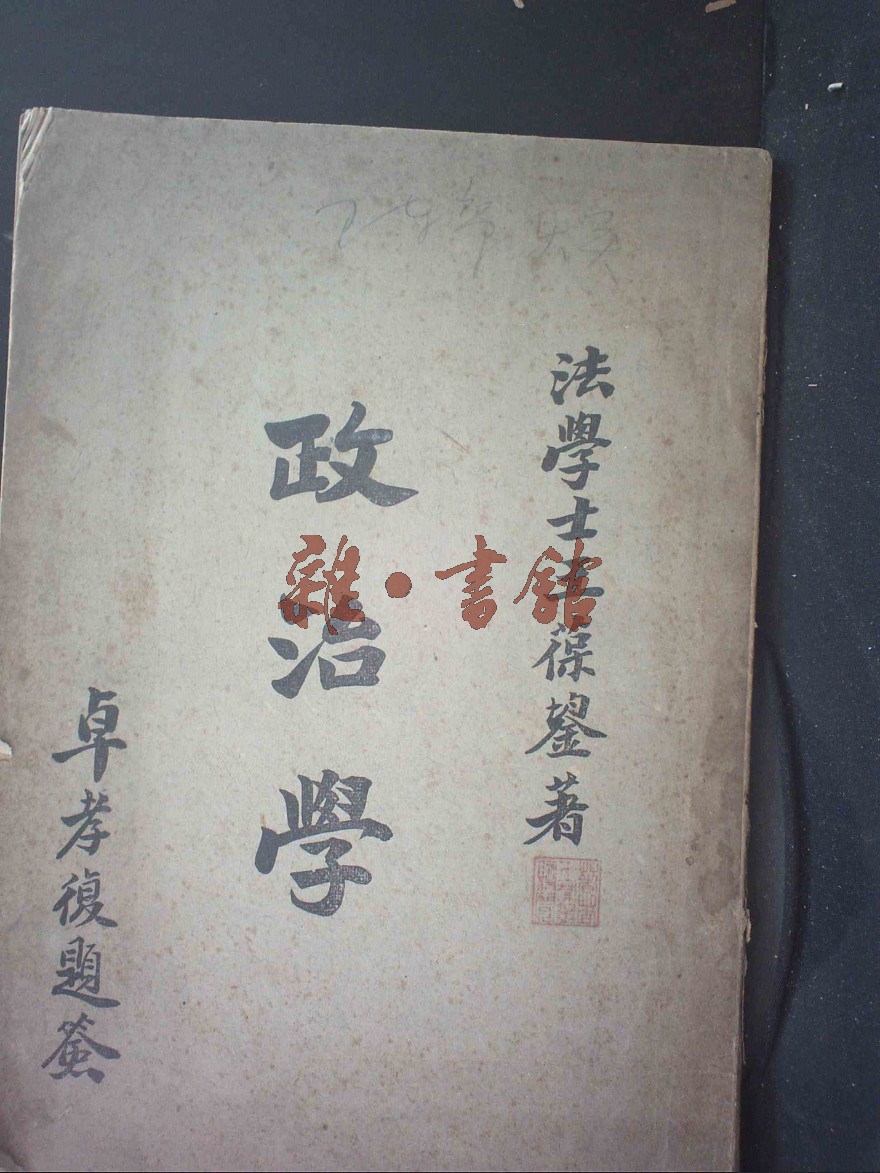 法學士王葆鋆著
政治學
卓孝復題簽
雜·書館